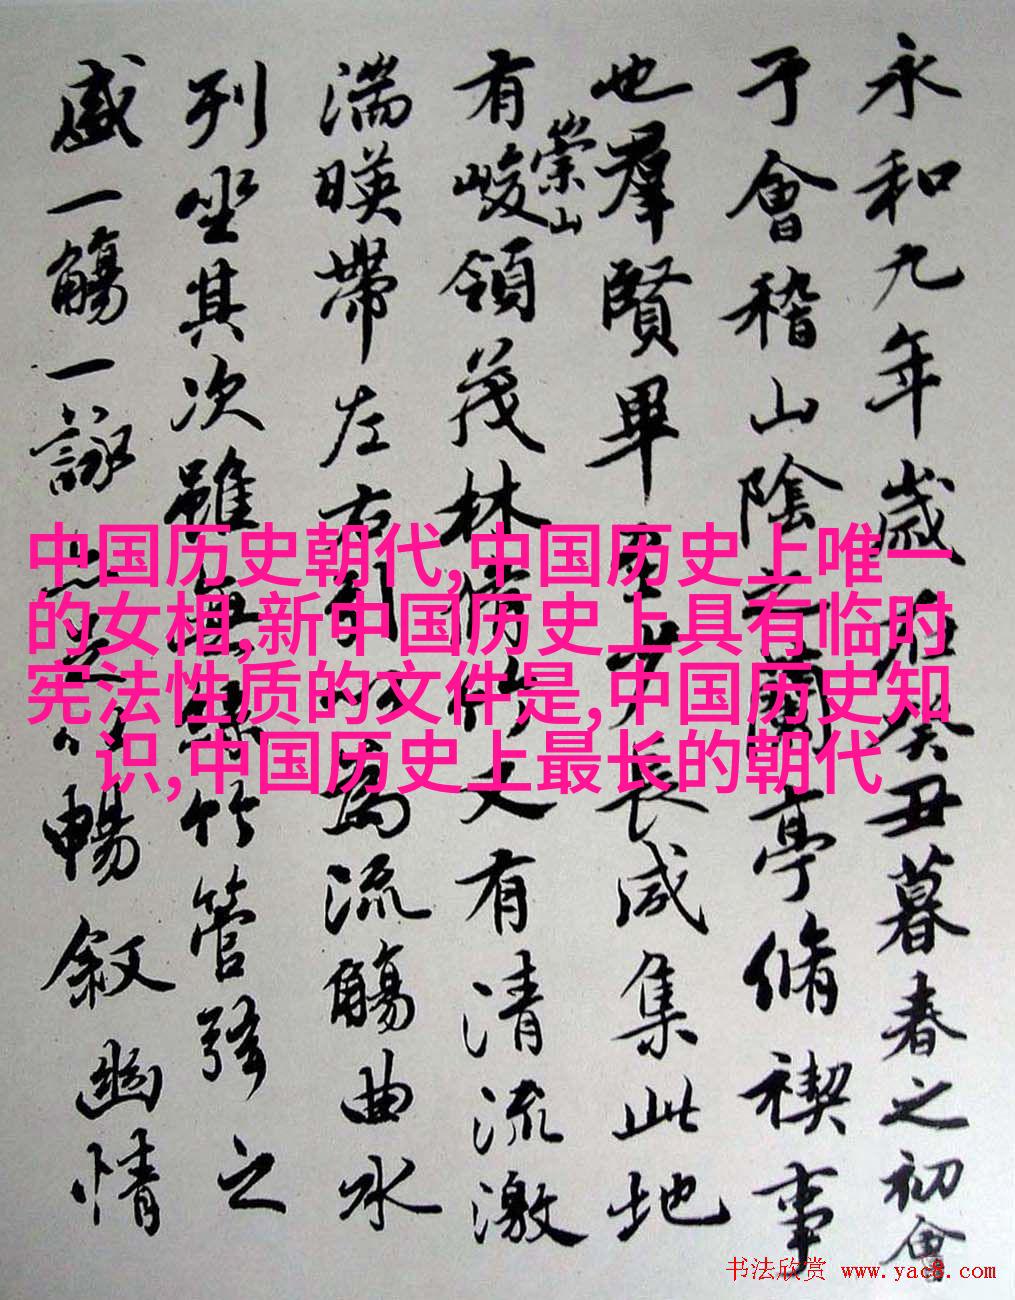 永和九年歲在癸丑暮春之初會
于會稽山陰之蘭亭脩禊事
也羣賢畢至少長咸集此地
有崇山峻領茂林脩竹又有清流激
湍暎帶左右引以為流觴曲水
列坐其次雖無絲竹管弦之
盛一觴一詠亦足以暢敘幽情
中国历史朝代,中国历史上唯一
的女相,新中国历史上具有临时
宪法性质的文件是,中国历史知
识,中国历史上最长的朝代
书法欣赏 www.yac8.com